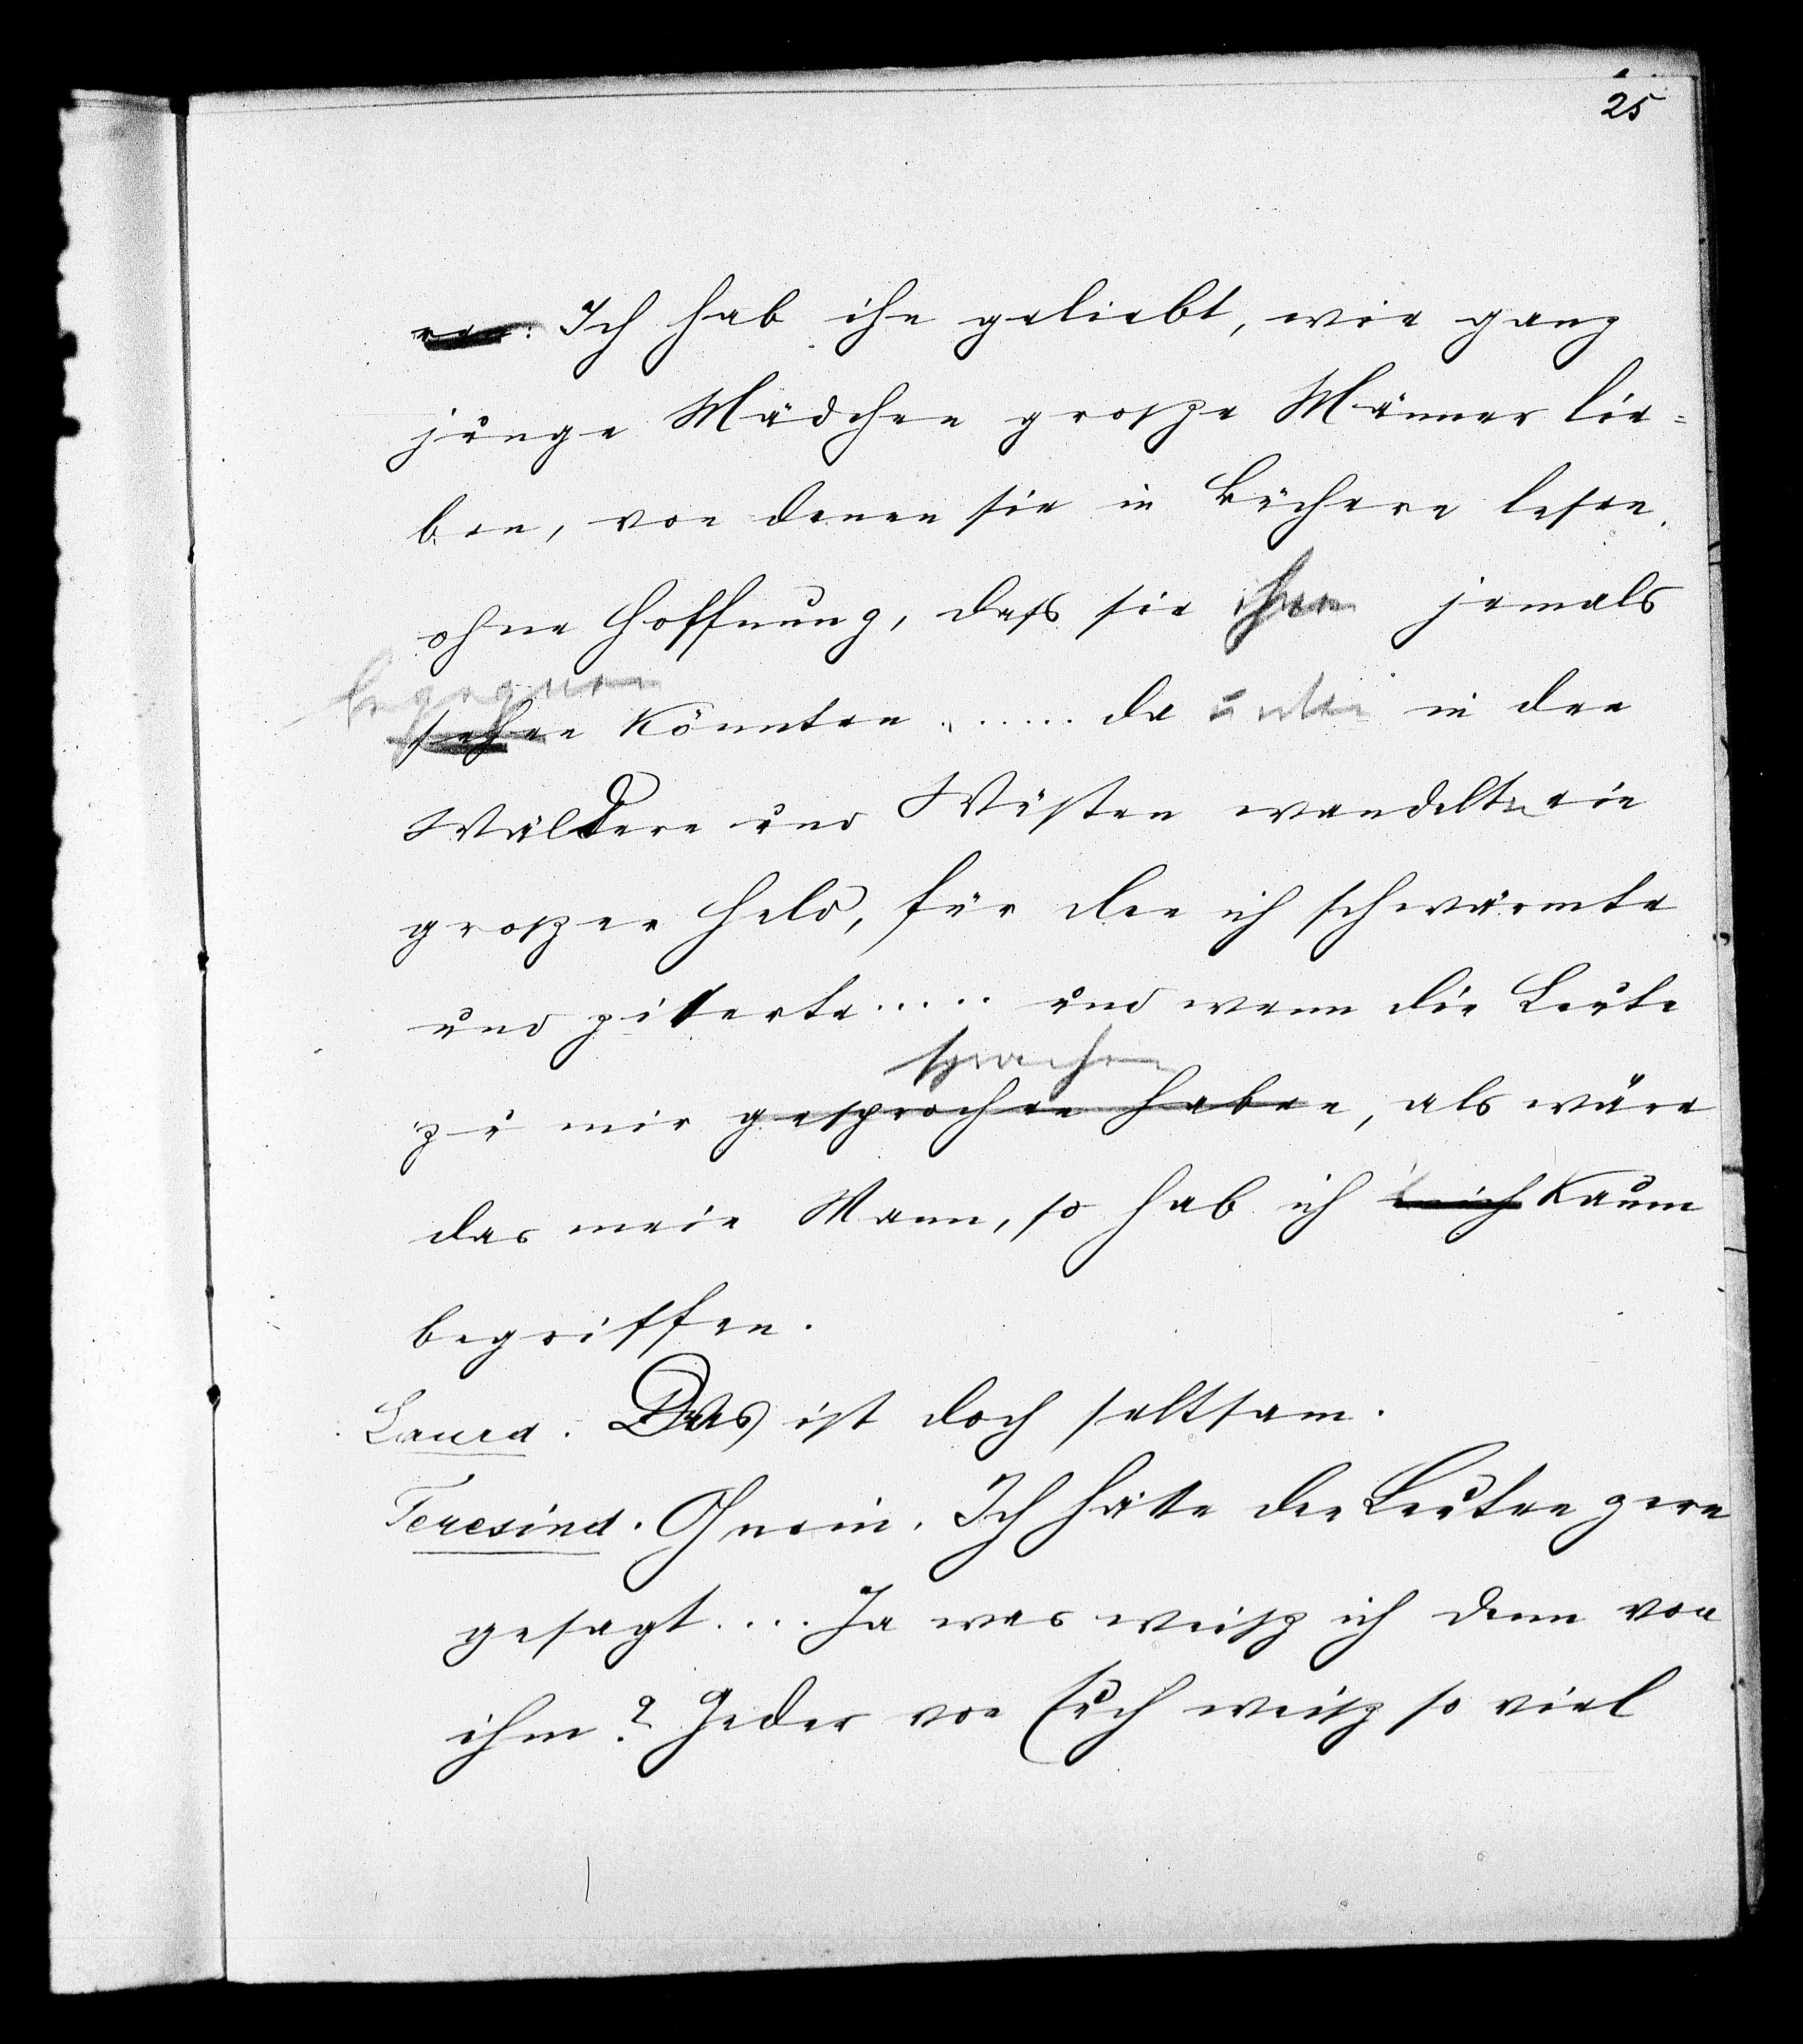 25
ren: Ich hab ihn geliebt, wie ganz
junge Mädchen große Männer lie=
ben, von denen sie in Büchern lesen,
ohne Hoffnung, dass sie ihnen jemals
begegnen
sehen könnten ...... da unten in den
Wäldern und Wüsten wandelte ein
großer Held, für den ich schwärmte
und zitterte ..... und wenn die Leute
sprachen
zu mir gesprochen haben, als wäre
das mein Mann, so hab ich kaum
begriffen.
Laura. Das ist doch seltsam.
Teresina. O nein. Ich hätte den Leuten gern
gesagt.... Ja was weiß ich denn von
ihm? Jeder von Euch weiß so viel